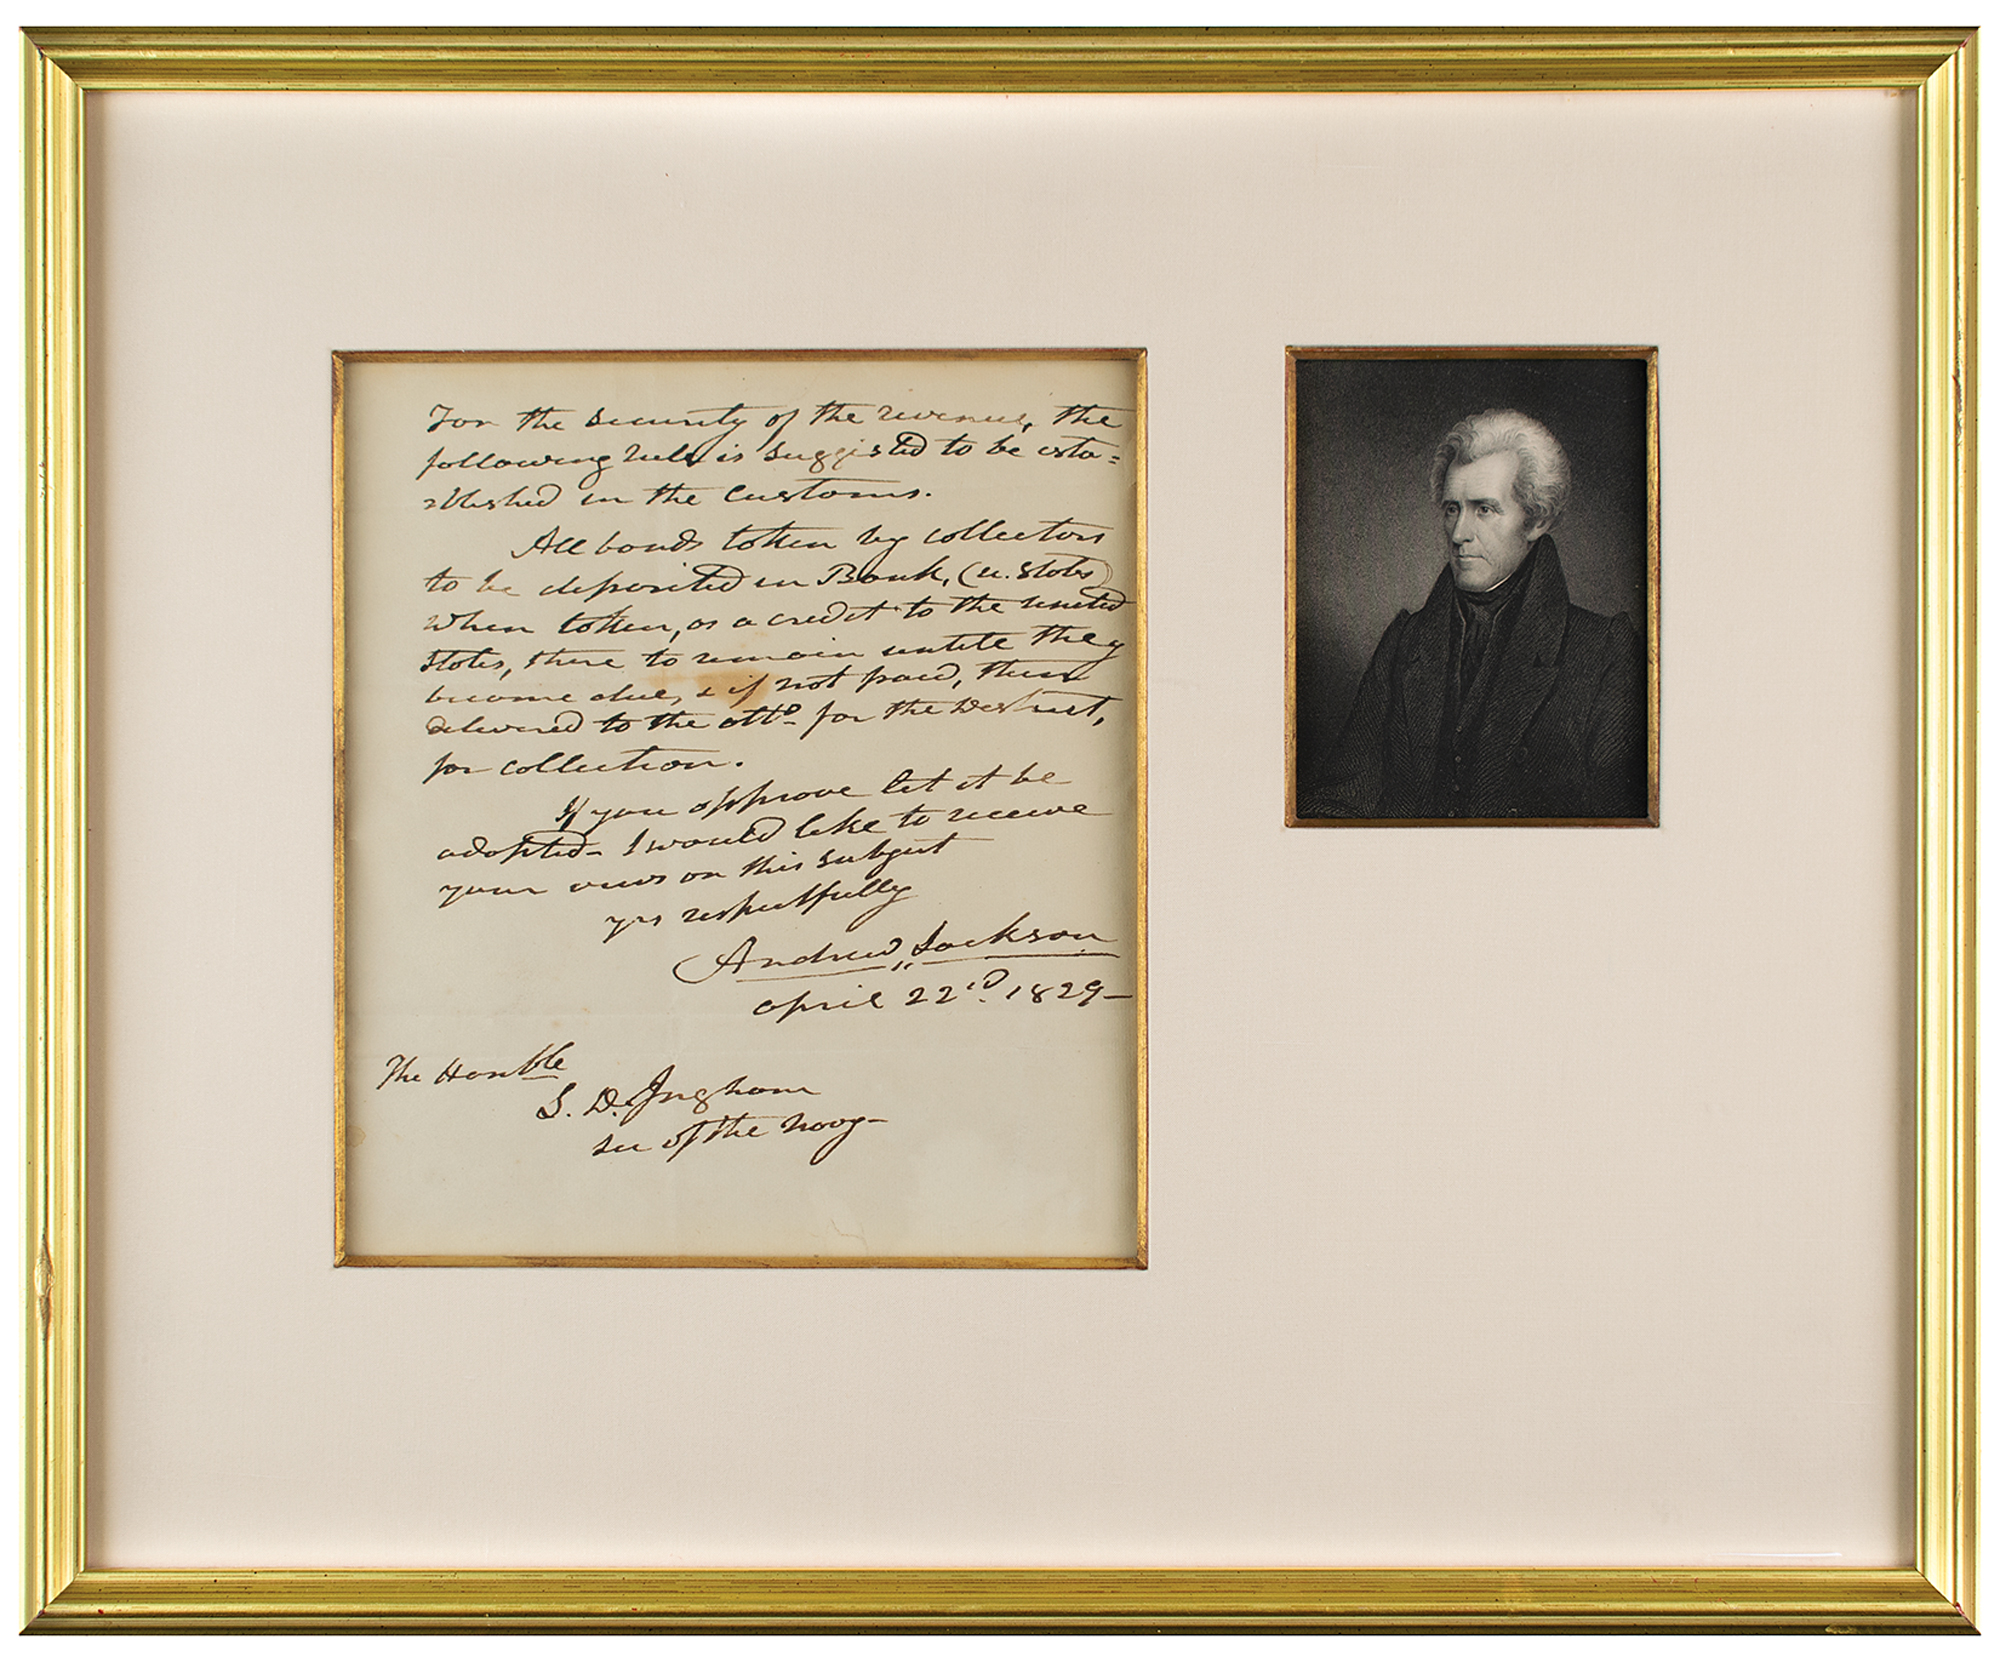 For the security of the revenue, the
following rule is suggested to be esta=
=blished in the Customs.
All bonds token by collectors
to be deposited in Bank, (u. States)
when token, as a credit to the united
States, there to remain untile they
become due, & if not paid, then
delivered to the atto. for the District,
for collection.
If you approve let it be
adopted— I would like to receive
your views on this subject
yrs respectfully
Andrew Jackson
April 22d. 1829—
The Honble
S. D. Ingham
sec of the